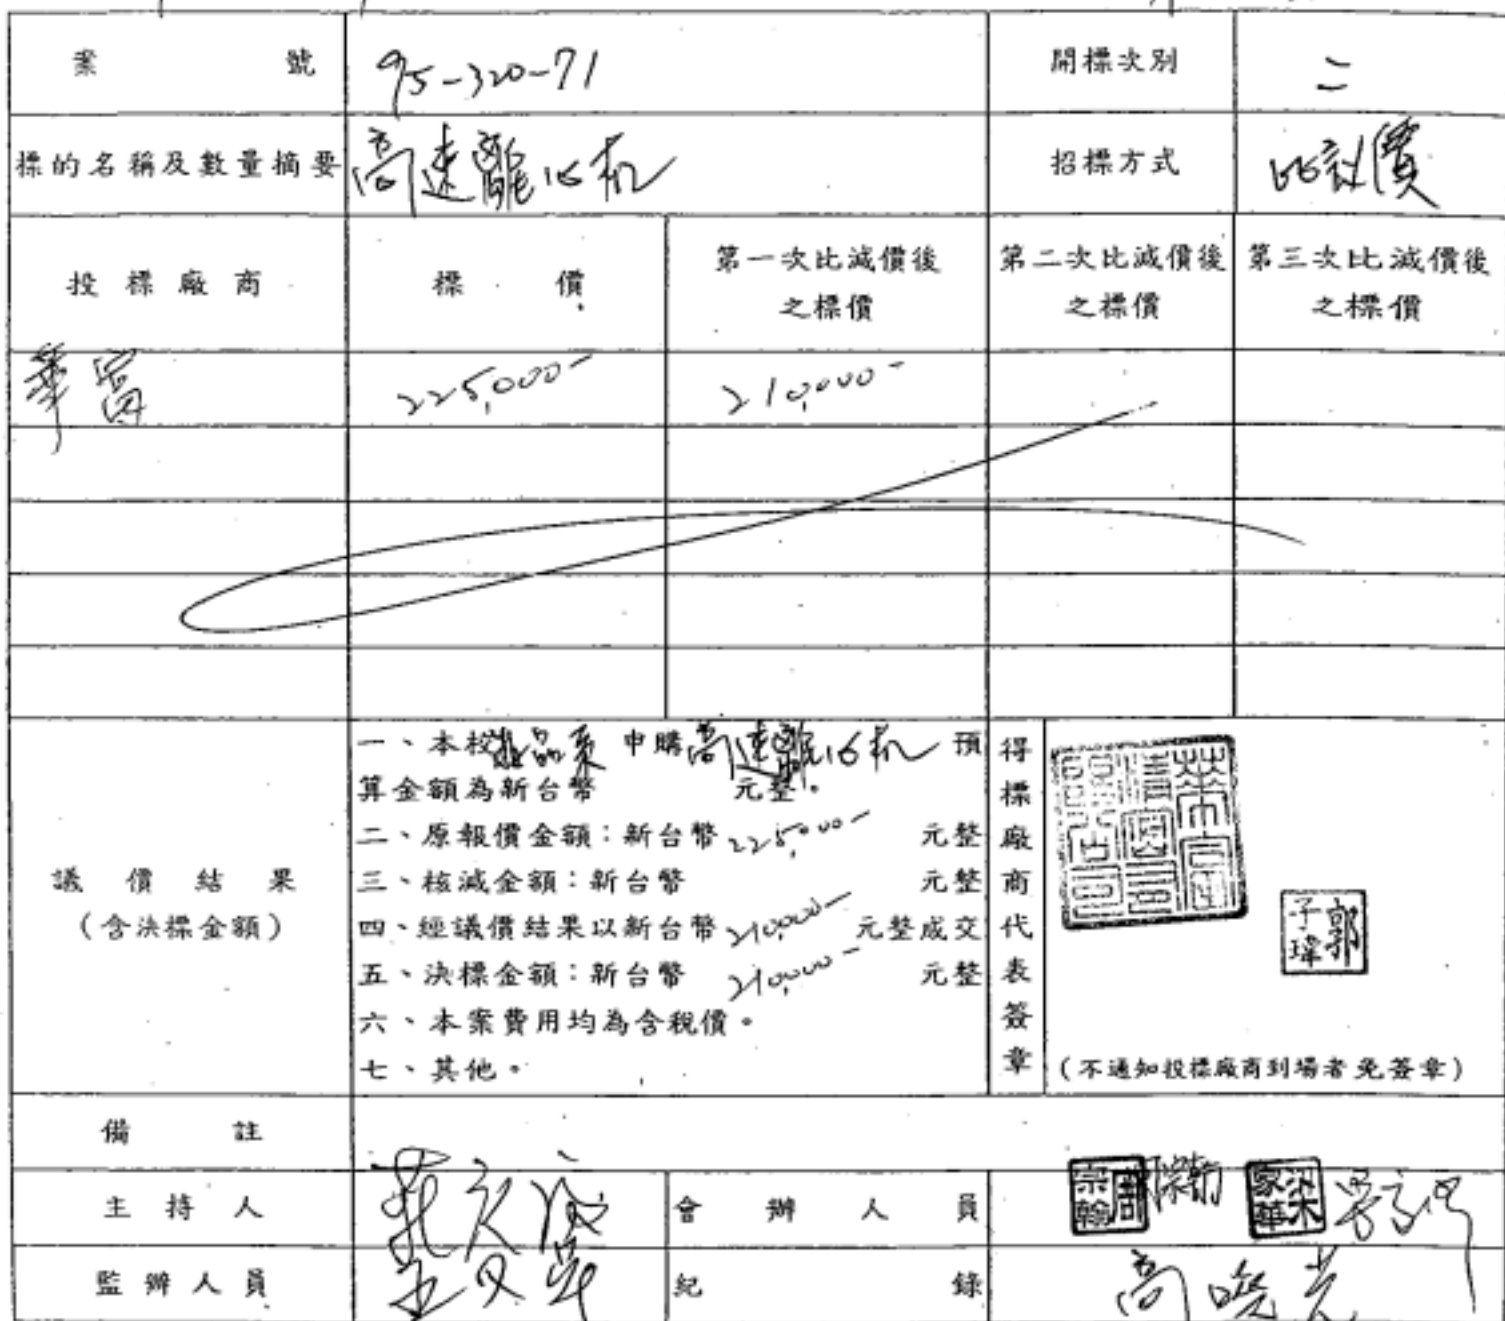 案 號 95-320-71 開標次別 二
標的名稱及數量摘要 高速離心机 招標方式 比議價
投標廠商 標價 第一次比減價後之標價 第二次比減價後之標價 第三次比減價後之標價
華富 225,000- 210,000-
議價結果
(含決標金額)
一、本校 食品系 申購 高速離心机 預
算金額為新台幣 元整。
二、原報價金額：新台幣 225,000- 元整
三、核減金額：新台幣 元整
四、經議價結果以新台幣 210,000- 元整成交
五、決標金額：新台幣 210,000- 元整
六、本案費用均為含稅價。
七、其他。
得標廠商代表簽章
郭子瑋
(不通知投標廠商到場者免簽章)
備註
主持人 會辦人員 周宗翰 梁家華
監辦人員 紀錄